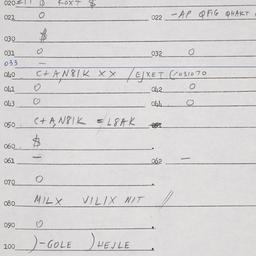 021 0 022 -AP QFIG QHAKT
030 $
031 0 032 0
033 -
040 C+A,N81K XX /EJXET
041 0 042 0
043 0 044 0
050 C+A,N81K =L8AK
060 $
061 - 062 -
070 0
080 MILX VILIX NIT //
090 0
100 )-GOLE )HEJLE